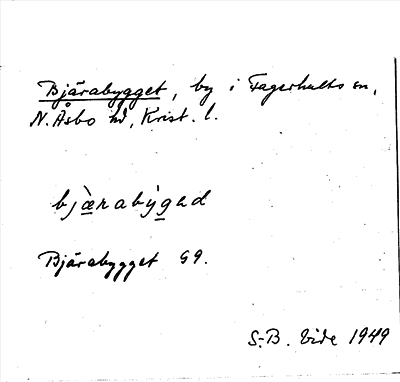 Bjärabygget, by i Fagerhults sn,
N. Åsbo hd, Krist. l.
bjæ̀rabýgəd
Bjärabygget G9.
S.-B. Vide 1949